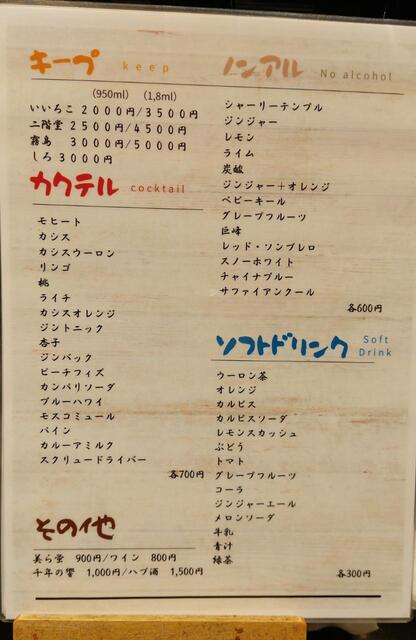 キープ keep
(950ml) (1,8ml)
いいちこ 2000円/3500円
二階堂 2500円/4500円
霧島 3000円/5000円
しろ 3000円
カクテル cocktail
モヒート
カシス
カシスウーロン
リンゴ
桃
ライチ
カシスオレンジ
ジントニック
杏子
ジンバック
ピーチフィズ
カンパリソーダ
ブルーハワイ
モスコミュール
パイン
カルーアミルク
スクリュードライバー
各700円
その他
美ら蛍 900円/ワイン 800円
千年の響 1,000円/ハブ酒 1,500円
ノンアル No alcohol
シャーリーテンプル
ジンジャー
レモン
ライム
炭酸
ジンジャー+オレンジ
ベビーキール
グレープフルーツ
巨峰
レッド・ソンブレロ
スノーホワイト
チャイナブルー
サファイアンクール
各600円
ソフトドリンク Soft Drink
ウーロン茶
オレンジ
カルピス
カルピスソーダ
レモンスカッシュ
ぶどう
トマト
グレープフルーツ
コーラ
ジンジャーエール
メロンソーダ
牛乳
青汁
緑茶
各300円